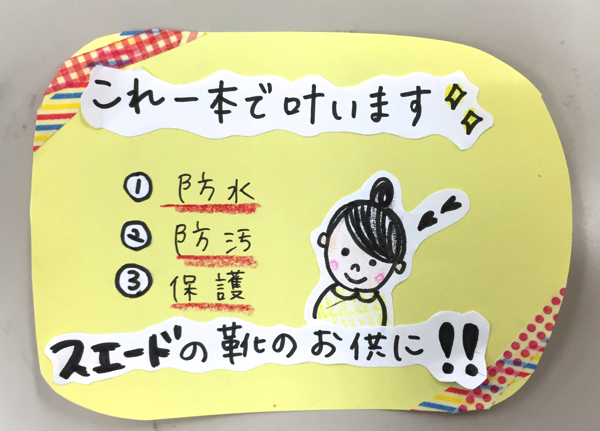 これ一本で叶います
① 防水
② 防汚
③ 保護
スエードの靴のお供に!!